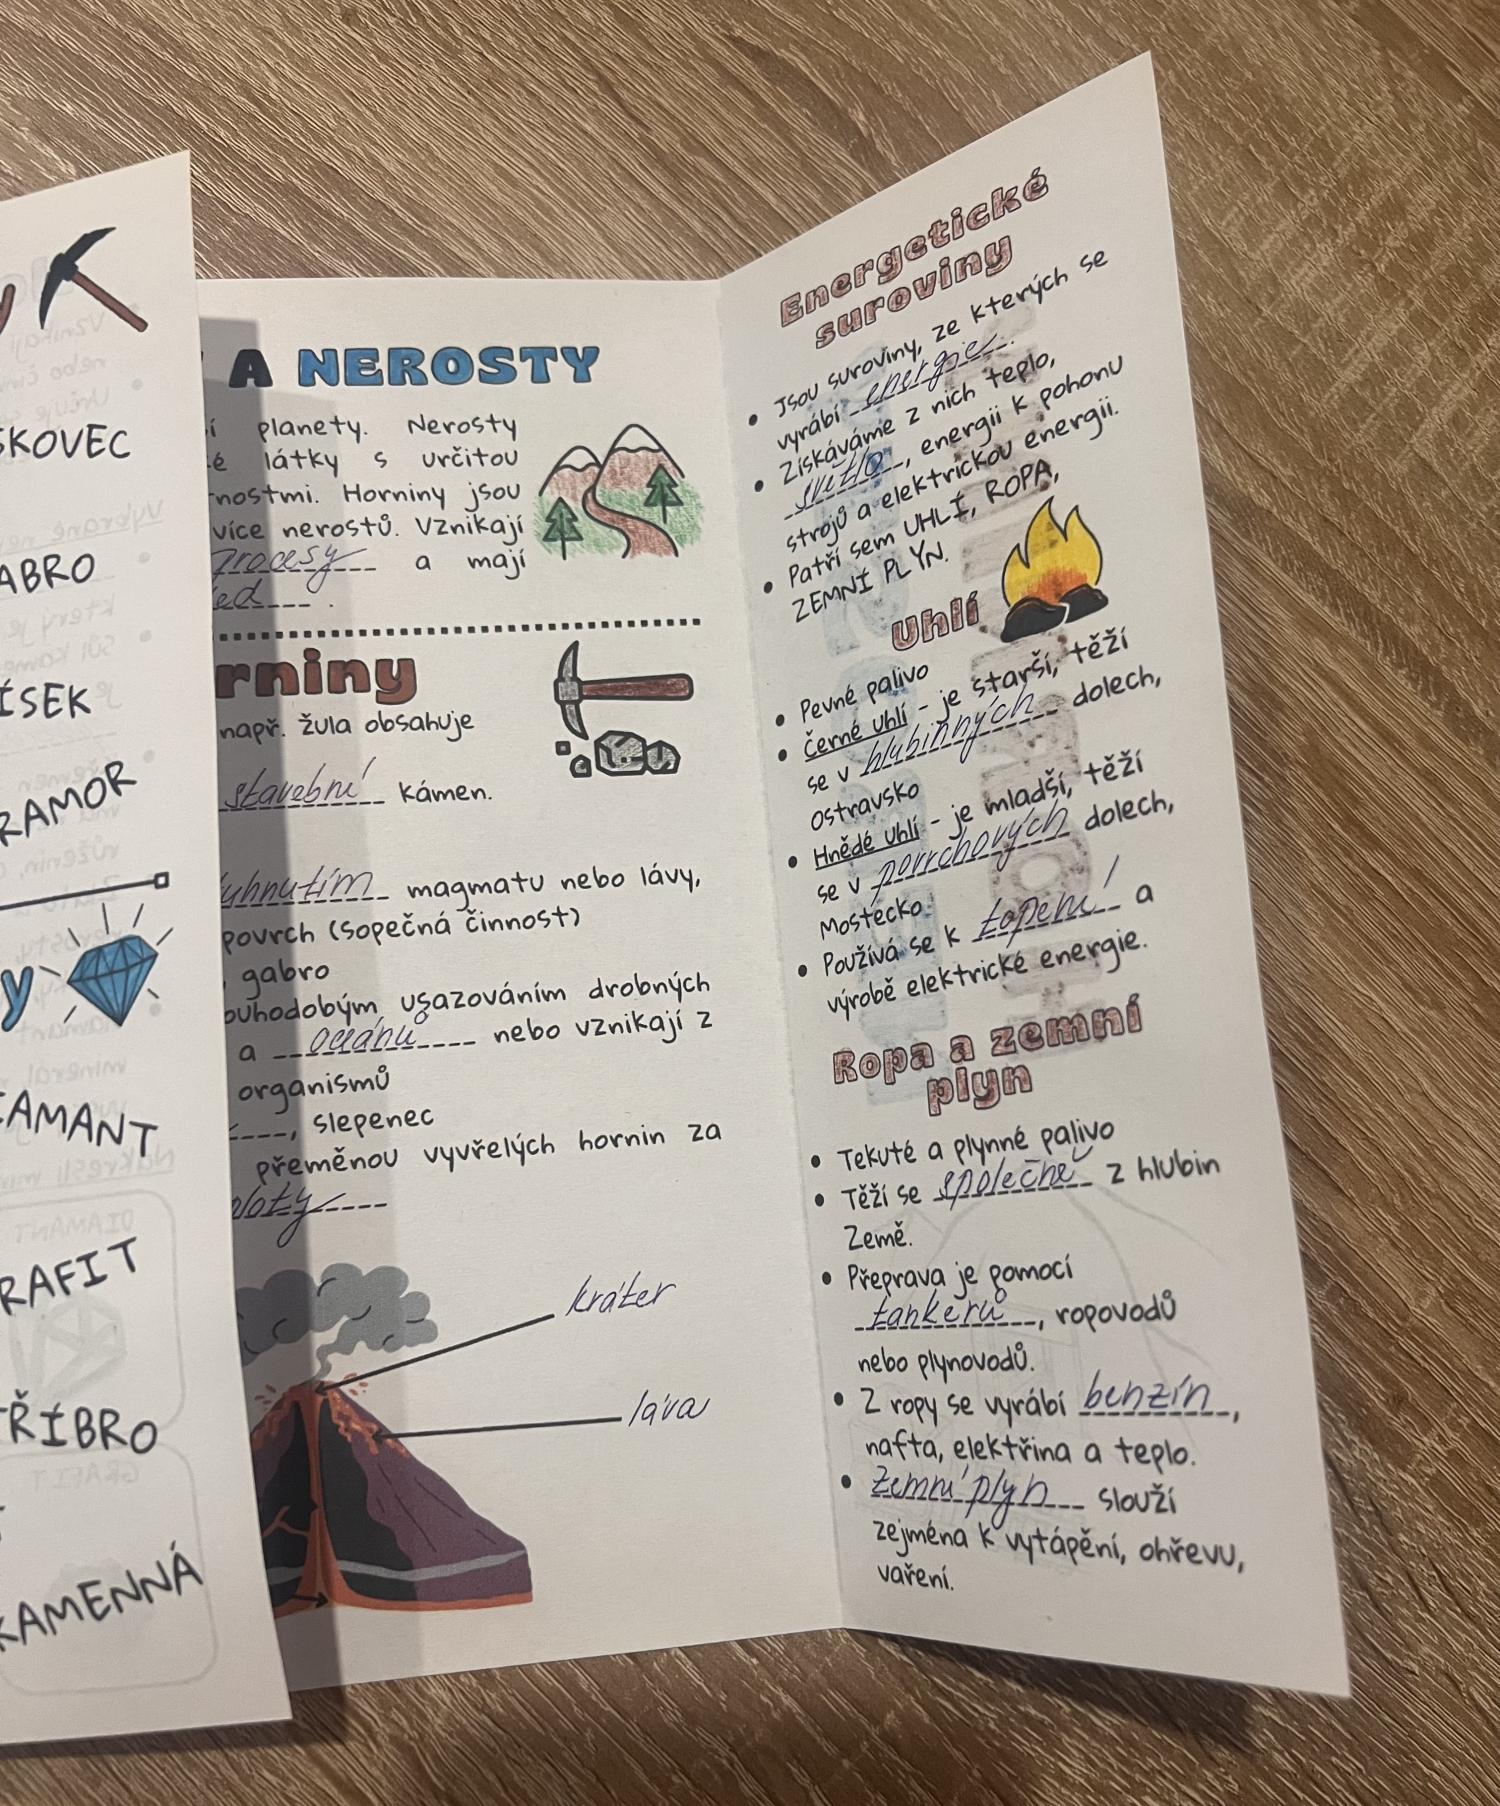 SKOVEC
ABRO
ÍSEK
RAMOR
y
AMANT
RAFIT
ŘÍBRO
KAMENNÁ
A NEROSTY
planety. Nerosty
látky s určitou
nostmi. Horniny jsou
více nerostů. Vznikají
procesy a mají
.
rniny
např. žula obsahuje
stavební kámen.
uhnutím magmatu nebo lávy,
povrch (sopečná činnost)
, gabro
ouhodobým usazováním drobných
a oceánů nebo vznikají z
organismů
, slepenec
přeměnou vyvřelých hornin za
kráter
láva
Energetické
suroviny
• Jsou suroviny, ze kterých se
vyrábí energie.
• Získáváme z nich teplo,
světlo, energii k pohonu
strojů a elektrickou energii.
• Patří sem UHLÍ, ROPA,
ZEMNÍ PLYN.
Uhlí
• Pevné palivo
• Černé uhlí - je starší, těží
se v hlubinných dolech,
Ostravsko
• Hnědé uhlí - je mladší, těží
se v povrchových dolech,
Mostecko
• Používá se k topení a
výrobě elektrické energie.
Ropa a zemní
plyn
• Tekuté a plynné palivo
• Těží se společně z hlubin
Země.
• Přeprava je pomocí
tankerů, ropovodů
nebo plynovodů.
• Z ropy se vyrábí benzín,
nafta, elektřina a teplo.
• Zemní plyn slouží
zejména k vytápění, ohřevu,
vaření.